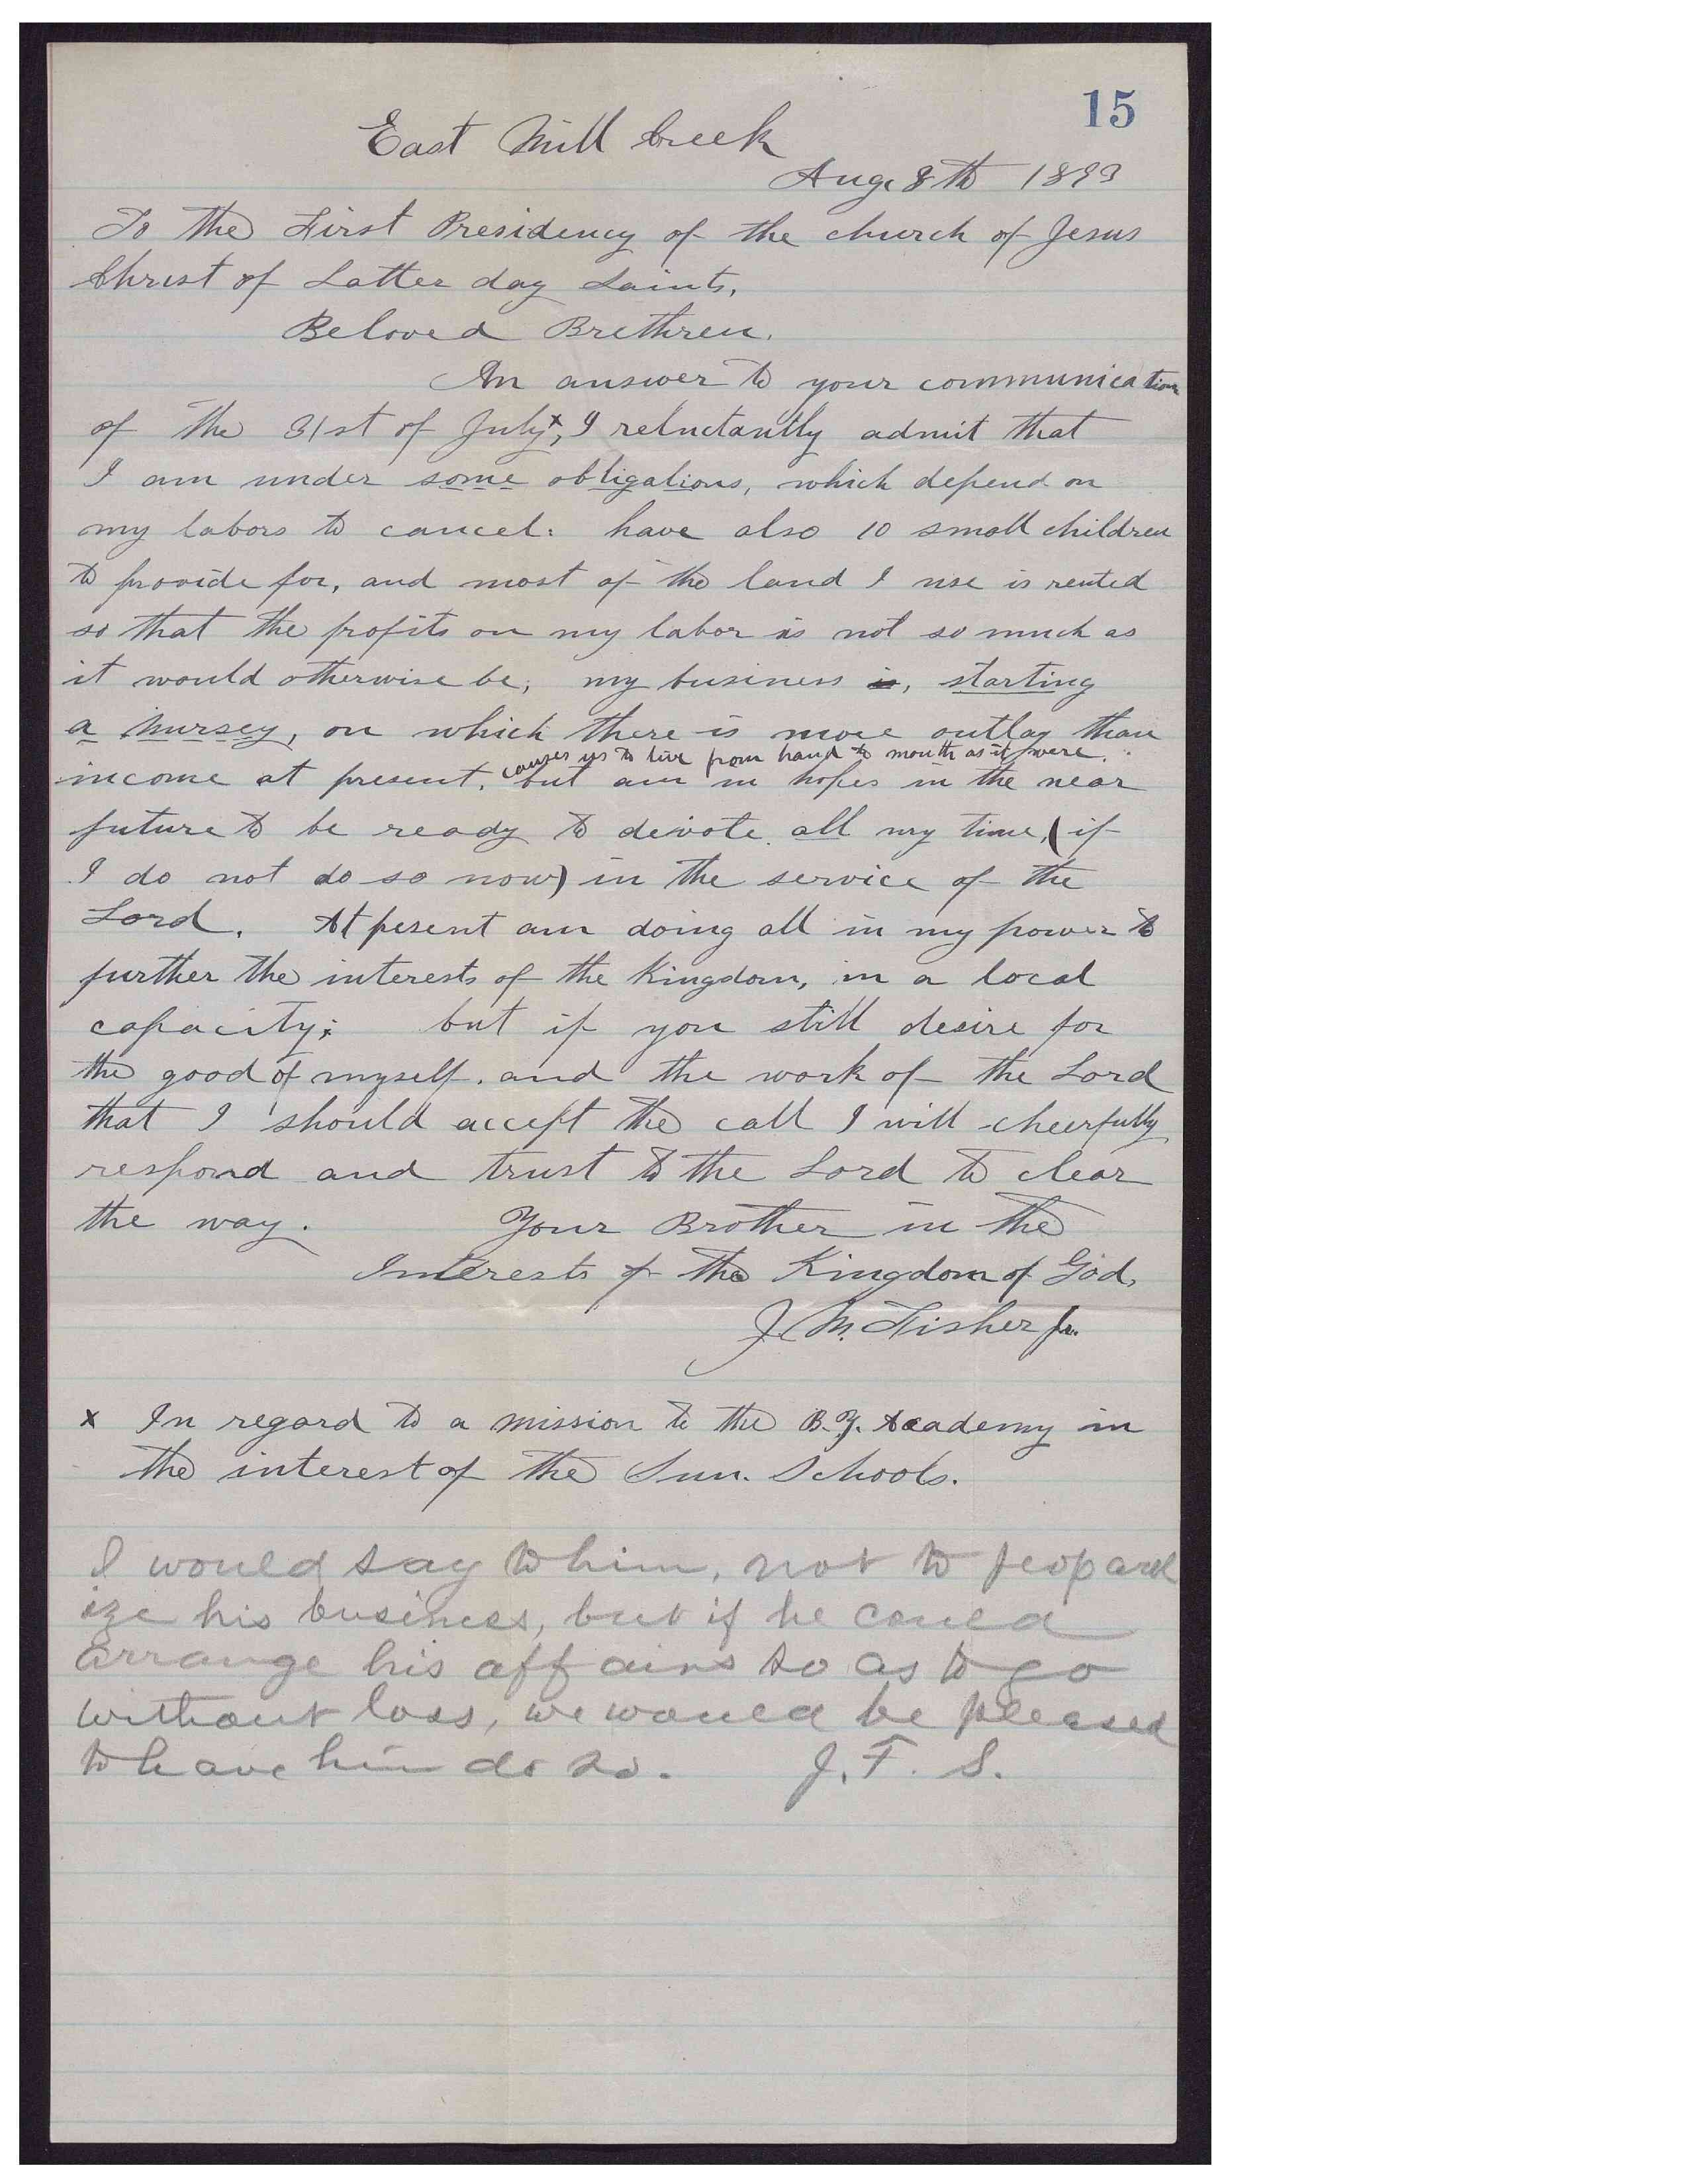 15
East Mill Creek
Aug. 8th 1893
To the First Presidency of the church of Jesus
Christ of Latter day Saints.
Beloved Brethren.
In answer to your communication
of the 31st of July x, I reluctantly admit that
I am under some obligations, which depend on
my labors to cancel: have also 10 small children
to provide for, and most of the land I use is rented
so that the profits on my labor is not so much as
it would otherwise be; my business is, starting
a Nursey, on which there is more outlay than
causes us to live from hand to mouth as it were.
income at present, but am in hopes in the near
future to be ready to devote all my time, (if
I do not do so now) in the service of the
Lord. At pesent am doing all in my power to
further the interests of the Kingdom, in a local
capacity; but if you still desire for
the good of myself. and the work of the Lord
that I should accept the call I will cheerfully
respond and trust to the Lord to clear
the way. Your Brother in the
Interests of the Kingdom of God,
J. M. Fisher Jr.
x In regard to a mission to the B.Y. Academy in
the interest of the Sun. Schools.
I would say to him, not to jeopard
ize his business, but if he could
arrange his affairs so as to go
without loss, we would be pleased
to have him do so. J. F. S.